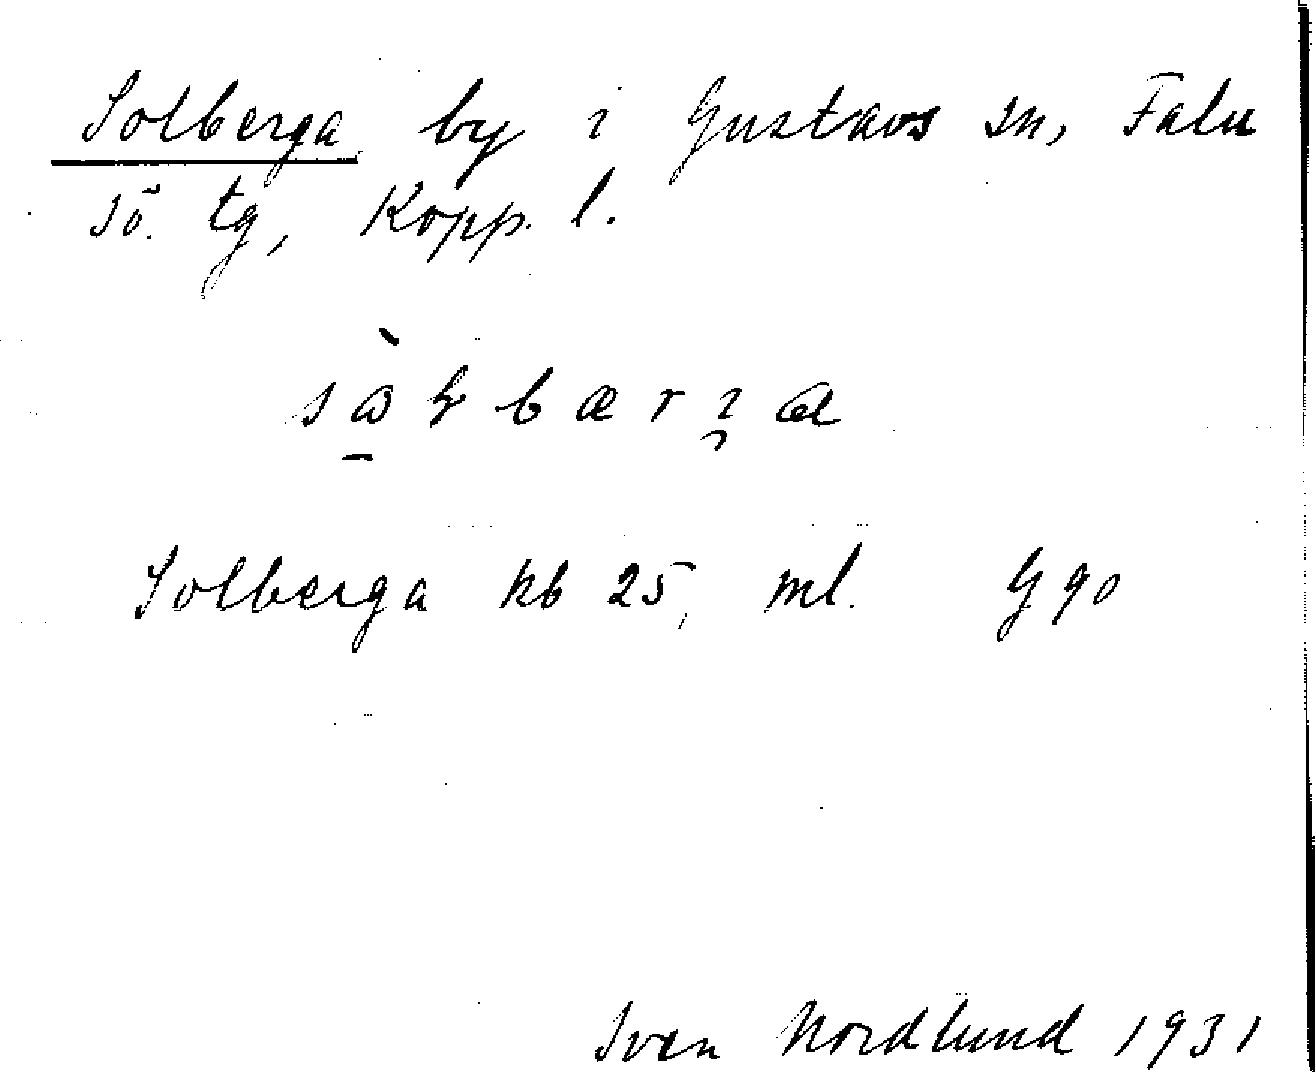 Solberga by i Gustavs sn, Falu
sö. tg, Kopp. l.
Solberga kb 25, ml. G 90
Sven Nordlund 1931